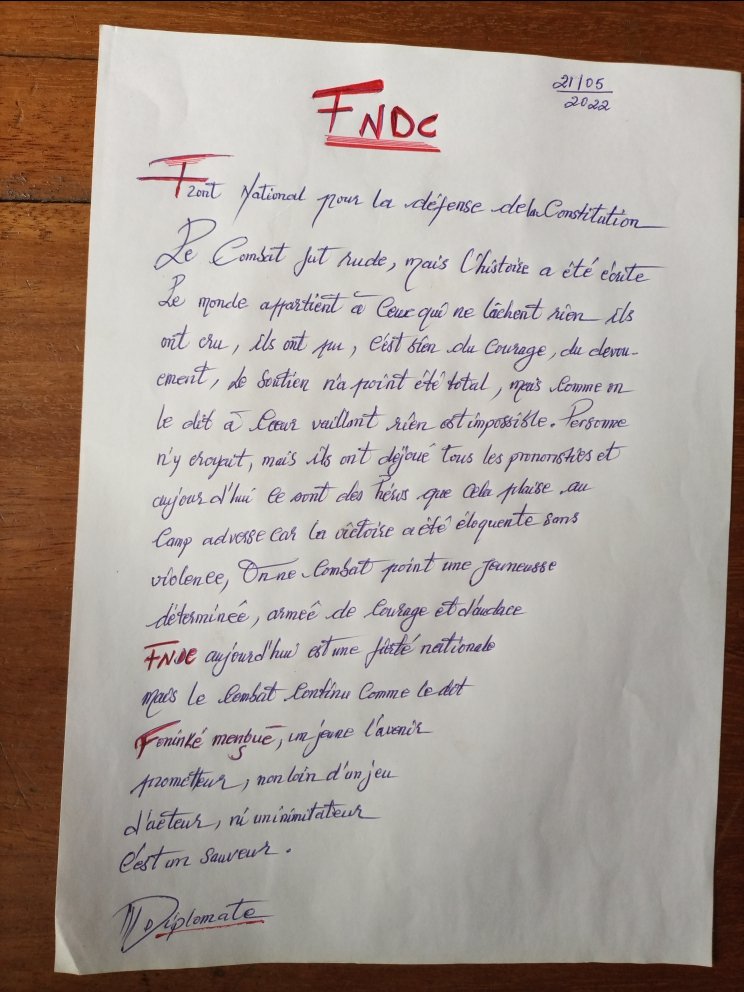 FNDC
21/05
2022
Front National pour la défense de la Constitution
Le Combat fut rude, mais l'histoire a été écrite
Le monde appartient à Ceux qui ne lâchent rien ils
ont cru, ils ont pu, c'est bien du Courage, du devou-
ement, le soutien n'a point été total, mais comme on
le dit à Cœur vaillant rien est impossible. Personne
n'y croyait, mais ils ont déjoué tous les pronostics et
aujourd'hui ce sont des héros que cela plaise au
Camp adverse car la victoire a été éloquente sans
violence, On ne Combat point une jeuneusse
déterminée, armeé de Courage et d'audace
FNDC aujourd'hui est une fierté nationale
mais le Combat Continu Comme le dit
Foninké mengué, un jeune l'avenir
prometteur, non loin d'un jeu
d'acteur, ni un inimitateur
C'est un sauveur.
Diplomate